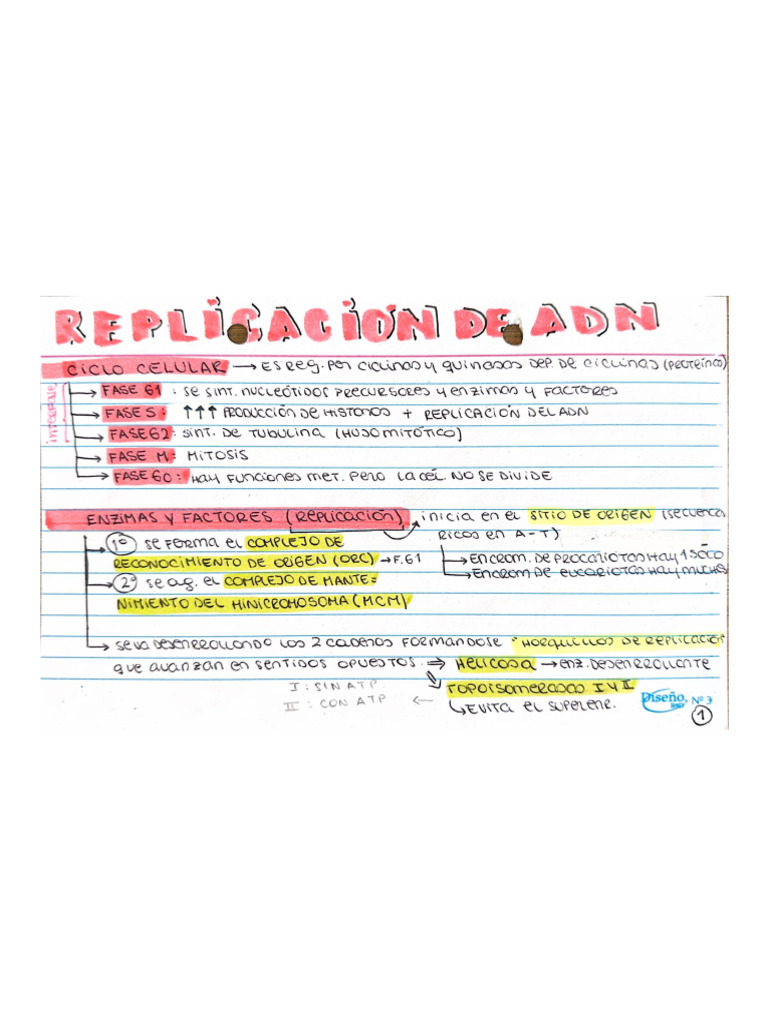 REPLICACIÓN DE ADN
CICLO CELULAR → ES REG. POR CICLINAS Y QUINASAS DEP. DE CICLINAS (PROTEÍNAS)
INTERFASE
→ FASE G1 : SE SINT. NUCLEÓTIDOS PRECURSORES Y ENZIMAS Y FACTORES
→ FASE S: ↑↑↑ PRODUCCIÓN DE HISTONAS + REPLICACIÓN DEL ADN
→ FASE G2: SINT. DE TUBULINA (HUSO MITÓTICO)
→ FASE M: MITOSIS
→ FASE G0: HAY FUNCIONES MET. PERO LA CÉL. NO SE DIVIDE
ENZIMAS Y FACTORES (REPLICACIÓN) → INICIA EN EL SITIO DE ORIGEN (SECUENCIAS
RICAS EN A-T)
→ 1º SE FORMA EL COMPLEJO DE
RECONOCIMIENTO DE ORIGEN (ORC) → F.G1
→ EN CROM. DE PROCARIOTAS HAY 1 SÓLO
→ EN CROM DE EUCARIOTAS HAY MUCHOS
→ 2º SE AG. EL COMPLEJO DE MANTE=
NIMIENTO DEL MINICROMOSOMA (MCM)
→ SE VA DESENRROLLANDO LAS 2 CADENAS FORMANDOSE "HORQUILLAS DE REPLICACIÓN"
QUE AVANZAN EN SENTIDOS OPUESTOS. ⇒ HELICASA → ENZ. DESENRROLLANTE
I : SIN ATP
⇒ TOPOISOMERASAS I Y II
II : CON ATP ←
↳ EVITA EL SUPERENR.
Diseño
Nº 3
1